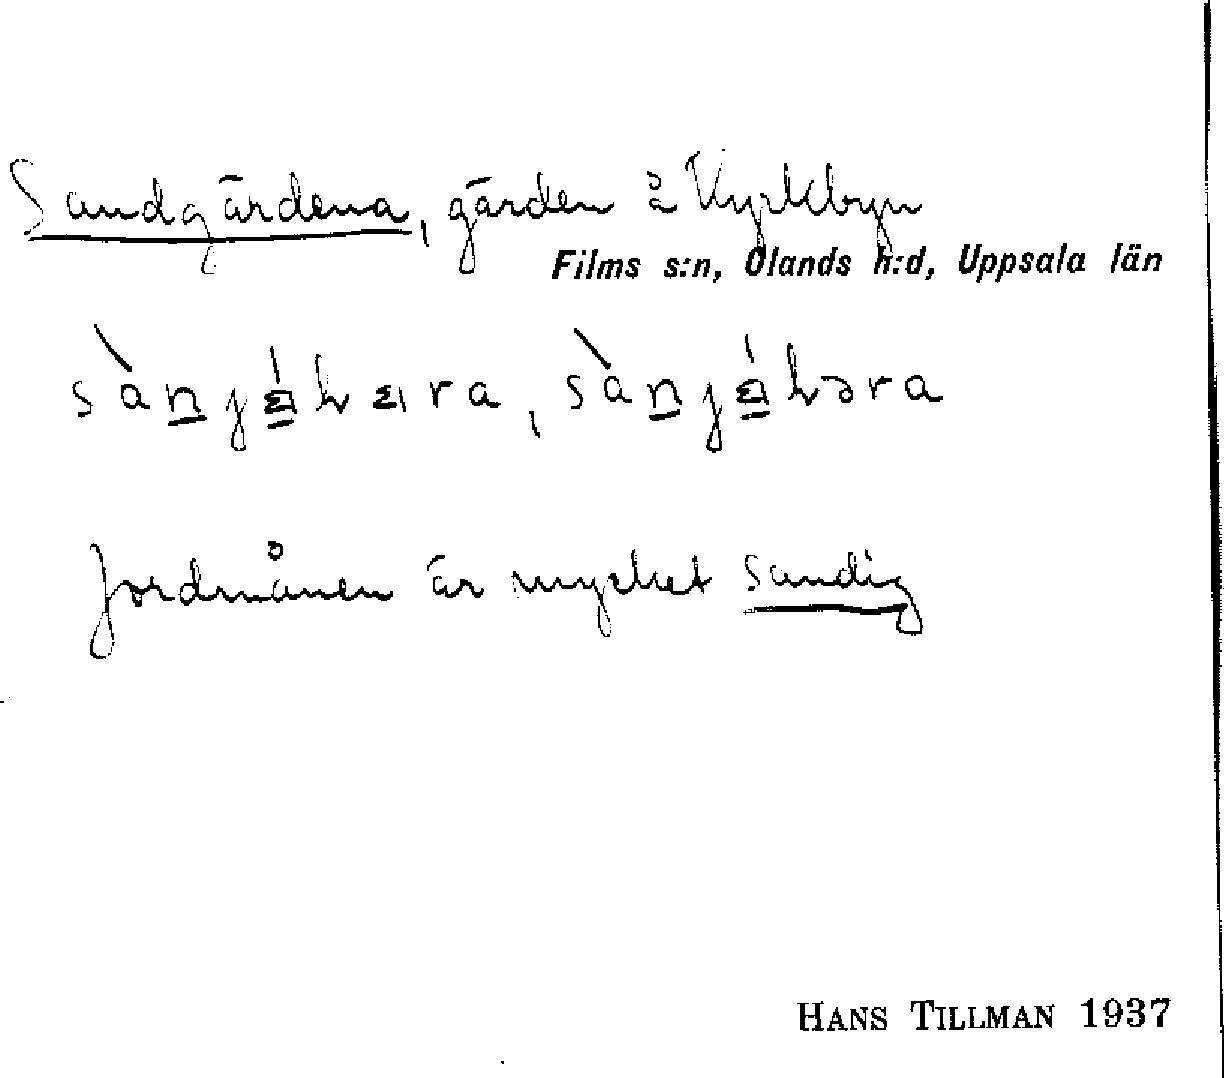 Sandgärdena, gärden å Kyrkbyn
Films s:n, Olands h:d, Uppsala län
Jordmånen är mycket sandig
HANS TILLMAN 1937